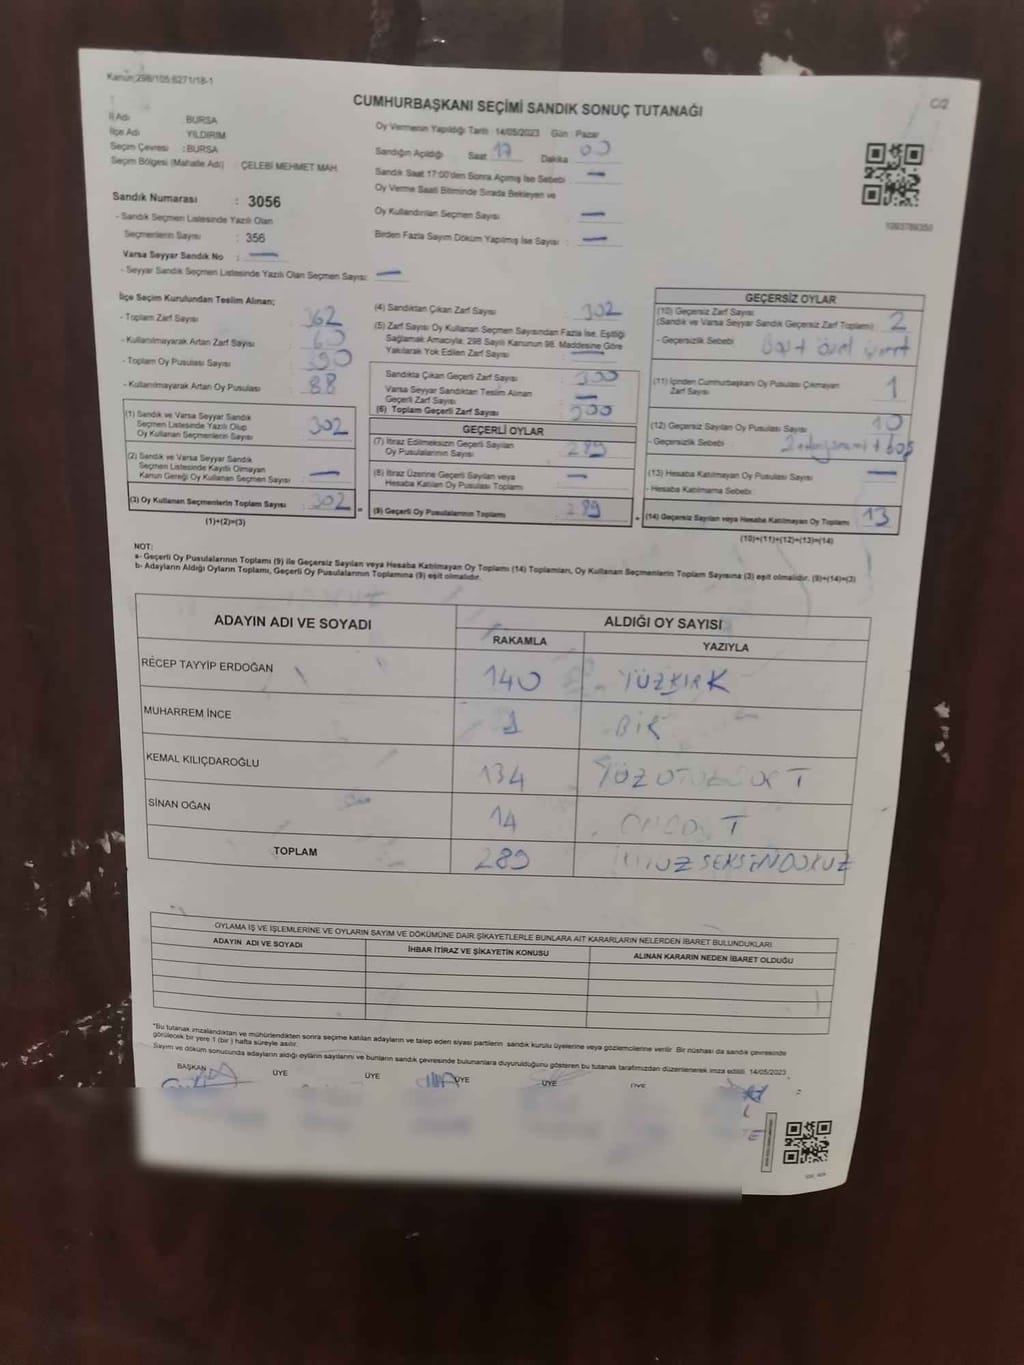 Kanun:298/105:6271/18-1
C/2
CUMHURBAŞKANI SEÇİMİ SANDIK SONUÇ TUTANAĞI
İl Adı : BURSA
İlçe Adı : YILDIRIM
Seçim Çevresi : BURSA
Seçim Bölgesi (Mahalle Adı) : ÇELEBİ MEHMET MAH.
Sandık Numarası : 3056
- Sandık Seçmen Listesinde Yazılı Olan
Seçmenlerin Sayısı : 356
Varsa Seyyar Sandık No : —
- Seyyar Sandık Seçmen Listesinde Yazılı Olan Seçmen Sayısı: —
Oy Vermenin Yapıldığı Tarih : 14/05/2023 Gün : Pazar
Sandığın Açıldığı Saat 17 Dakika 00
Sandık Saat 17:00'den Sonra Açılmış İse Sebebi : —
Oy Verme Saati Bitiminde Sırada Bekleyen ve
Oy Kullandırılan Seçmen Sayısı : —
Birden Fazla Sayım Döküm Yapılmış İse Sayısı : —
İlçe Seçim Kurulundan Teslim Alınan;
- Toplam Zarf Sayısı : 362
- Kullanılmayarak Artan Zarf Sayısı : 60
- Toplam Oy Pusulası Sayısı : 390
- Kullanılmayarak Artan Oy Pusulası : 88
(1) Sandık ve Varsa Seyyar Sandık
Seçmen Listesinde Yazılı Olup
Oy Kullanan Seçmenlerin Sayısı : 302
(2) Sandık ve Varsa Seyyar Sandık
Seçmen Listesinde Kayıtlı Olmayan
Kanun Gereği Oy Kullanan Seçmen Sayısı : —
(3) Oy Kullanan Seçmenlerin Toplam Sayısı : 302
(1)+(2)=(3)
(4) Sandıktan Çıkan Zarf Sayısı : 302
(5) Zarf Sayısı Oy Kullanan Seçmen Sayısından Fazla İse, Eşitliği
Sağlamak Amacıyla; 298 Sayılı Kanunun 98. Maddesine Göre
Yakılarak Yok Edilen Zarf Sayısı : —
Sandıkta Çıkan Geçerli Zarf Sayısı : 300
Varsa Seyyar Sandıktan Teslim Alınan
Geçerli Zarf Sayısı : —
(6) Toplam Geçerli Zarf Sayısı : 300
GEÇERLİ OYLAR
(7) İtiraz Edilmeksizin Geçerli Sayılan
Oy Pusulalarının Sayısı : 289
(8) İtiraz Üzerine Geçerli Sayılan veya
Hesaba Katılan Oy Pusulası Toplamı : —
(9) Geçerli Oy Pusulalarının Toplamı : 289
GEÇERSİZ OYLAR
(10) Geçersiz Zarf Sayısı
(Sandık ve Varsa Seyyar Sandık Geçersiz Zarf Toplamı) : 2
- Geçersizlik Sebebi : özel işaret
(11) İçinden Cumhurbaşkanı Oy Pusulası Çıkmayan
Zarf Sayısı : 1
(12) Geçersiz Sayılan Oy Pusulası Sayısı : 10
- Geçersizlik Sebebi : + boş
(13) Hesaba Katılmayan Oy Pusulası Sayısı : —
- Hesaba Katılmama Sebebi :
(14) Geçersiz Sayılan veya Hesaba Katılmayan Oy Toplamı : 13
(10)+(11)+(12)+(13)=(14)
NOT:
a- Geçerli Oy Pusulalarının Toplamı (9) ile Geçersiz Sayılan veya Hesaba Katılmayan Oy Toplamı (14) Toplamları, Oy Kullanan Seçmenlerin Toplam Sayısına (3) eşit olmalıdır. (9)+(14)=(3)
b- Adayların Aldığı Oyların Toplamı, Geçerli Oy Pusulalarının Toplamına (9) eşit olmalıdır.
ADAYIN ADI VE SOYADI ALDIĞI OY SAYISI
RAKAMLA YAZIYLA
RECEP TAYYİP ERDOĞAN 140 YÜZKIRK
MUHARREM İNCE 1 BİR
KEMAL KILIÇDAROĞLU 134 YÜZ OTUZDÖRT
SİNAN OĞAN 14 ONDÖRT
TOPLAM 289 İKİYÜZSEKSENDOKUZ
OYLAMA İŞ VE İŞLEMLERİNE VE OYLARIN SAYIM VE DÖKÜMÜNE DAİR ŞİKAYETLERLE BUNLARA AİT KARARLARIN NELERDEN İBARET BULUNDUKLARI
ADAYIN ADI VE SOYADI İHBAR İTİRAZ VE ŞİKAYETİN KONUSU ALINAN KARARIN NEDEN İBARET OLDUĞU
"Bu tutanak imzalandıktan ve mühürlendikten sonra seçime katılan adayların ve talep eden siyasi partilerin sandık kurulu üyelerine veya gözlemcilerine verilir. Bir nüshası da sandık çevresinde
görülecek bir yere 1 (bir) hafta süreyle asılır.
Sayım ve döküm sonucunda adayların aldığı oyların sayılarını ve bunların sandık çevresinde bulunanlara duyurulduğunu gösteren bu tutanak tarafımızdan düzenlenerek imza edildi. 14/05/2023
BAŞKAN ÜYE ÜYE ÜYE ÜYE ÜYE